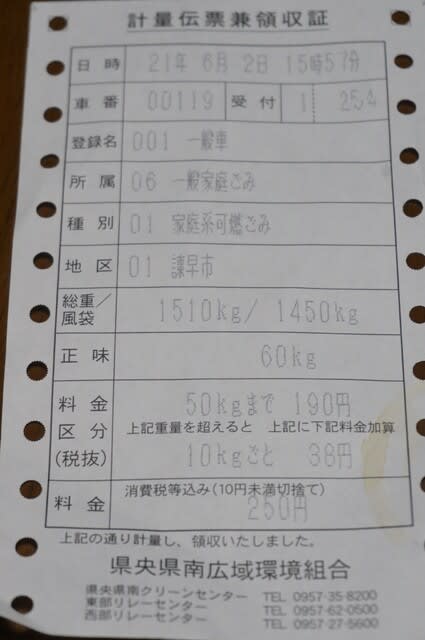 計量伝票兼領収証
日時 21年 6月 2日 15時57分
車番 00119 受付 1 254
登録名 001 一般車
所属 06 一般家庭ごみ
種別 01 家庭系可燃ごみ
地区 01 諫早市
総重／風袋 1510kg/ 1450kg
正味 60kg
料金区分(税抜) 50kgまで 190円
上記重量を超えると 上記に下記料金加算
10kgごと 38円
消費税等込み(10円未満切捨て)
料金 250円
上記の通り計量し、領収いたしました。
県央県南広域環境組合
県央県南クリーンセンター TEL 0957-35-8200
東部リレーセンター TEL 0957-62-0500
西部リレーセンター TEL 0957-27-5600